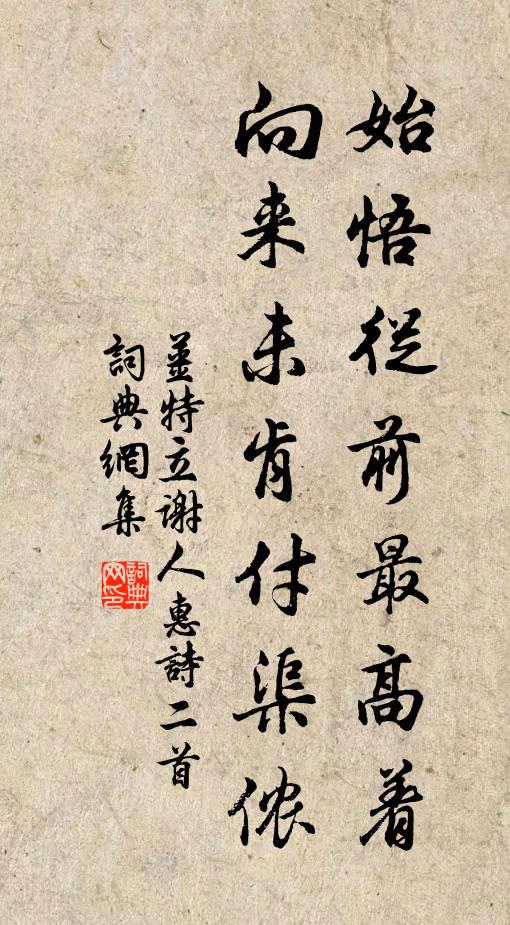 始悟從前最高着
向来未肯付渠侬
姜特立谢人惠詩二首
詞典網集
詞典网印